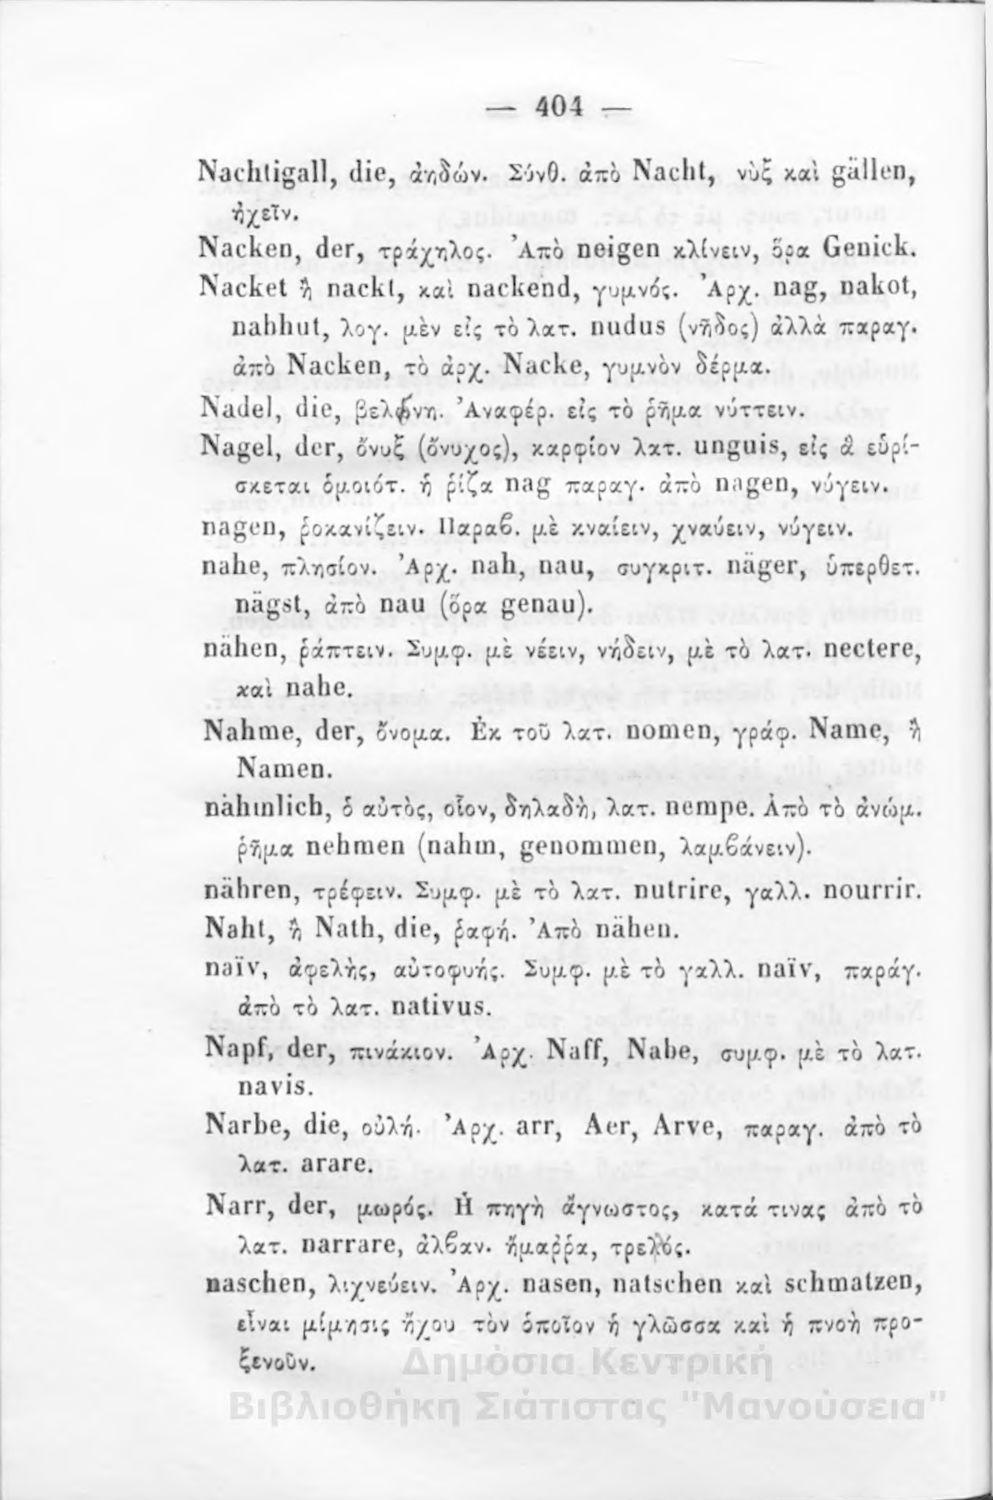 — 404 —
Nachtigall, die, ἀηδών. Σύνθ. ἀπὸ Nacht, νὺξ καὶ gällen,
ἠχεῖν.
Nacken, der, τράχηλος. Ἀπὸ neigen κλίνειν, ὅρα Genick.
Nacket ἢ nackt, καὶ nackend, γυμνός. Ἀρχ. nag, nakot,
nahhut, λογ. μὲν εἰς τὸ λατ. nudus (νῆδος) ἀλλὰ παραγ.
ἀπὸ Nacken, τὸ ἀρχ. Nacke, γυμνὸν δέρμα.
Nadel, die, βελόνη. Ἀναφέρ. εἰς τὸ ῥῆμα νύττειν.
Nagel, der, ὄνυξ (ὄνυχος), καρφίον λατ. unguis, εἰς ἃ εὑρί-
σκεται ὁμοιότ. ἡ ῥίζα nag παραγ. ἀπὸ nagen, νύγειν.
nagen, ῥοκανίζειν. Παραβ. μὲ κναίειν, χναύειν, νύγειν.
nahe, πλησίον. Ἀρχ. nah, nau, συγκριτ. näger, ὑπερθετ.
nägst, ἀπὸ nau (ὅρα genau).
nähen, ῥάπτειν. Συμφ. μὲ νέειν, νήδειν, μὲ τὸ λατ. nectere,
καὶ nahe.
Nahme, der, ὄνομα. Ἐκ τοῦ λατ. nomen, γράφ. Name, ἢ
Namen.
nähmlich, ὁ αὐτὸς, οἷον, δηλαδὴ, λατ. nempe. Ἀπὸ τὸ ἀνώμ.
ῥῆμα nehmen (nahm, genommen, λαμβάνειν).
nähren, τρέφειν. Συμφ. μὲ τὸ λατ. nutrire, γαλλ. nourrir.
Naht, ἢ Nath, die, ῥαφή. Ἀπὸ nähen.
naïv, ἀφελὴς, αὐτοφυής. Συμφ. μὲ τὸ γαλλ. naïv, παράγ.
ἀπὸ τὸ λατ. nativus.
Napf, der, πινάκιον. Ἀρχ. Naff, Nabe, συμφ. μὲ τὸ λατ.
navis.
Narbe, die, οὐλή. Ἀρχ. arr, Aer, Arve, παραγ. ἀπὸ τὸ
λατ. arare.
Narr, der, μωρός. Ἡ πηγὴ ἄγνωστος, κατά τινας ἀπὸ τὸ
λατ. narrare, ἀλβαν. ἤμαῤῥα, τρελός.
naschen, λιχνεύειν. Ἀρχ. nasen, natschen καὶ schmatzen,
εἶναι μίμησις ἤχου τὸν ὁποῖον ἡ γλῶσσα καὶ ἡ πνοὴ προ-
ξενοῦν.
Δημόσια Κεντρική
Βιβλιοθήκη Σιάτιστας "Μανούσεια"